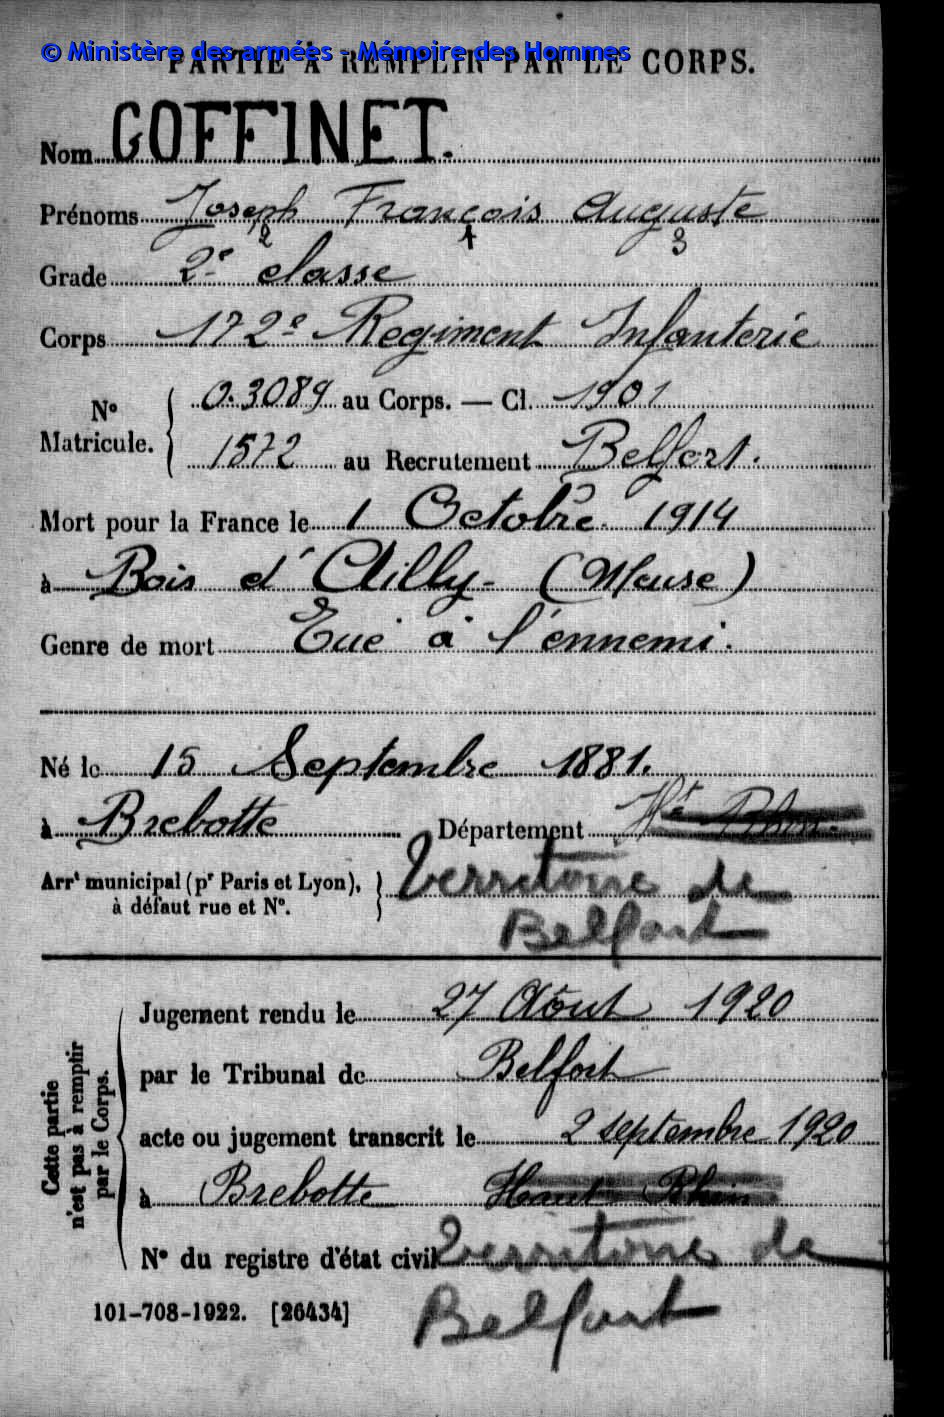 © Ministère des armées - Mémoire des Hommes
PARTIE À REMPLIR PAR LE CORPS.
Nom GOFFINET.
Prénoms Joseph François Auguste
2 1 3
Grade 2e classe
Corps 172e Regiment Infanterie
No Matricule. { 0.3089 au Corps. — Cl. 1901
1572 au Recrutement Belfort.
Mort pour la France le 1 Octobre 1914
à Bois d'Ailly - (Meuse)
Genre de mort Tué à l'ennemi.
Né le 15 Septembre 1881.
à Brebotte Département Ht Rhin.
Arrt municipal (pr Paris et Lyon), à défaut rue et No. } Territoire de
Belfort
Cette partie n'est pas à remplir par le Corps.
Jugement rendu le 27 Août 1920
par le Tribunal de Belfort
acte ou jugement transcrit le 2 septembre 1920
à Brebotte Haut Rhin
No du registre d'état civil Territoire de
Belfort
101-708-1922. [26434]